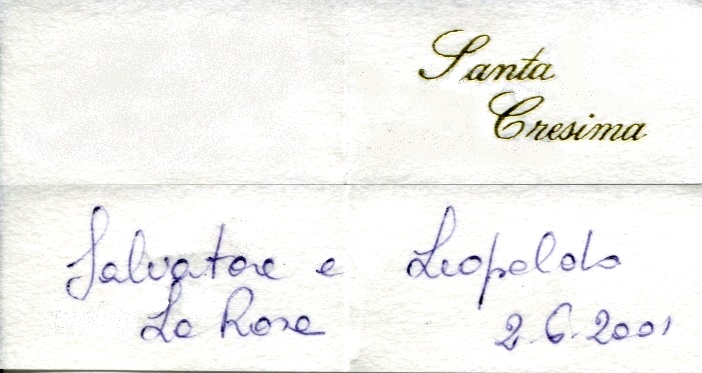 Santa
Cresima
Salvatore e Leopoldo
La Rosa 2.6.2001